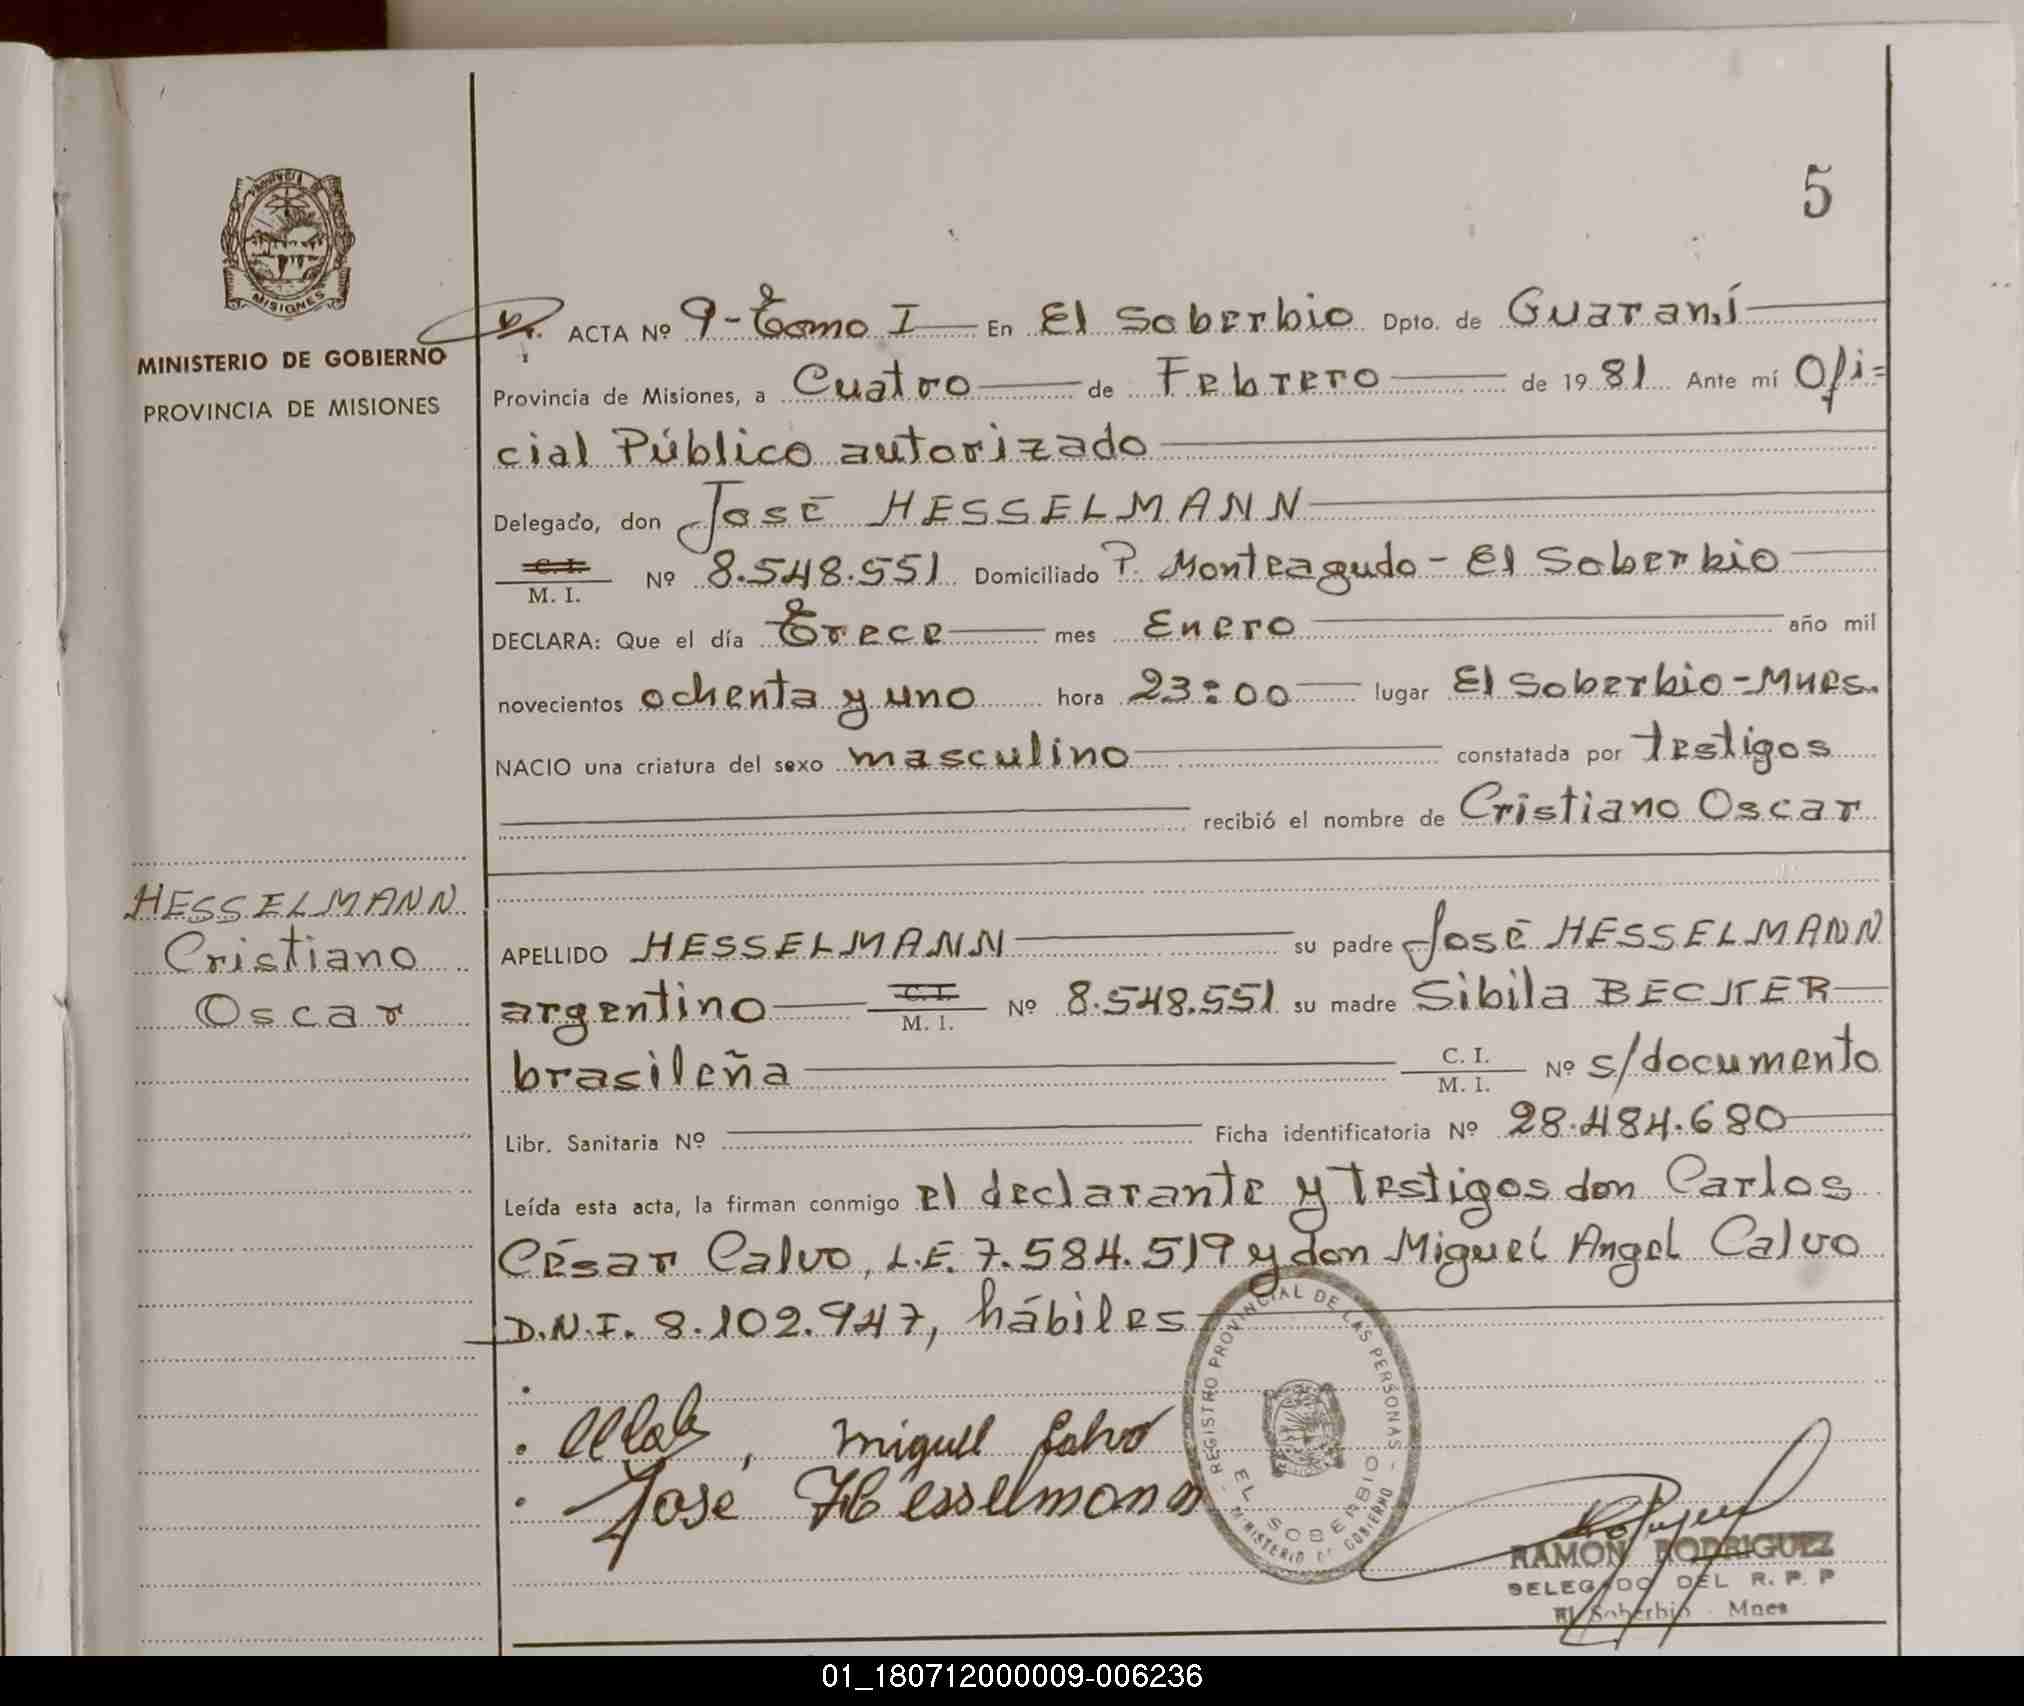 5
PROVINCIA DE
MISIONES
MINISTERIO DE GOBIERNO
PROVINCIA DE MISIONES
HESSELMANN
Cristiano
Oscar
ACTA Nº 9-Tomo I En El Soberbio Dpto. de Guaraní
Provincia de Misiones, a Cuatro de Febrero de 1981 Ante mí Ofi=
cial Público autorizado
Delegado, don José HESSELMANN
C. I. / M. I. Nº 8.548.551 Domiciliado P. Monteagudo - El Soberbio
DECLARA: Que el día Trece mes Enero año mil
novecientos ochenta y uno hora 23:00 lugar El Soberbio-Mnes.
NACIO una criatura del sexo masculino constatada por testigos
recibió el nombre de Cristiano Oscar
APELLIDO HESSELMANN su padre José HESSELMANN
argentino C. I. / M. I. Nº 8.548.551 su madre Sibila BECKER
brasileña C. I. / M. I. Nº s/documento
Libr. Sanitaria Nº Ficha identificatoria Nº 28.484.680
Leída esta acta, la firman conmigo el declarante y testigos don Carlos
César Calvo, L.E. 7.584.519 y don Miguel Angel Calvo
D.N.I. 8.102.947, hábiles
Miguel Calvo
José Hesselmann
REGISTRO PROVINCIAL DE LAS PERSONAS - MINISTERIO DE GOBIERNO
EL SOBERBIO
RAMON RODRIGUEZ
DELEGADO DEL R. P. P
El Soberbio - Mnes
01_180712000009-006236